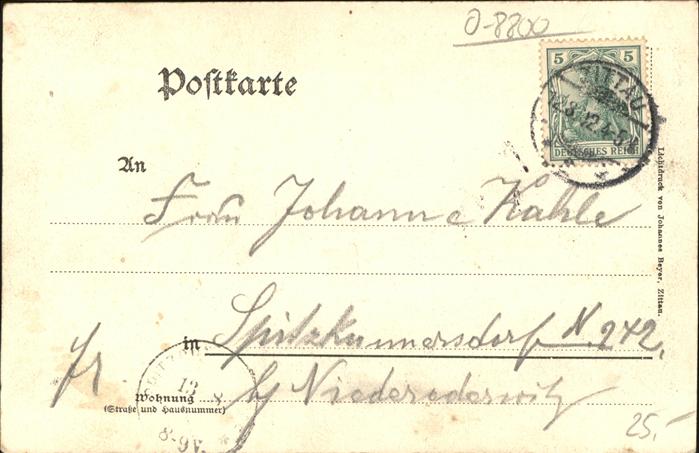 0-8800
5 5
ZITTAU
12.8.02.4-5N.
DEUTSCHES REICH
Postkarte
An
Frau Johanne Kahle
in Spitzkunnersdorf N. 242,
Fr
13 8
8-9V.
Wohnung b/ Niederoderwitz
(Straße und Hausnummer)
25,-
Lichtdruck von Johannes Beyer, Zittau.